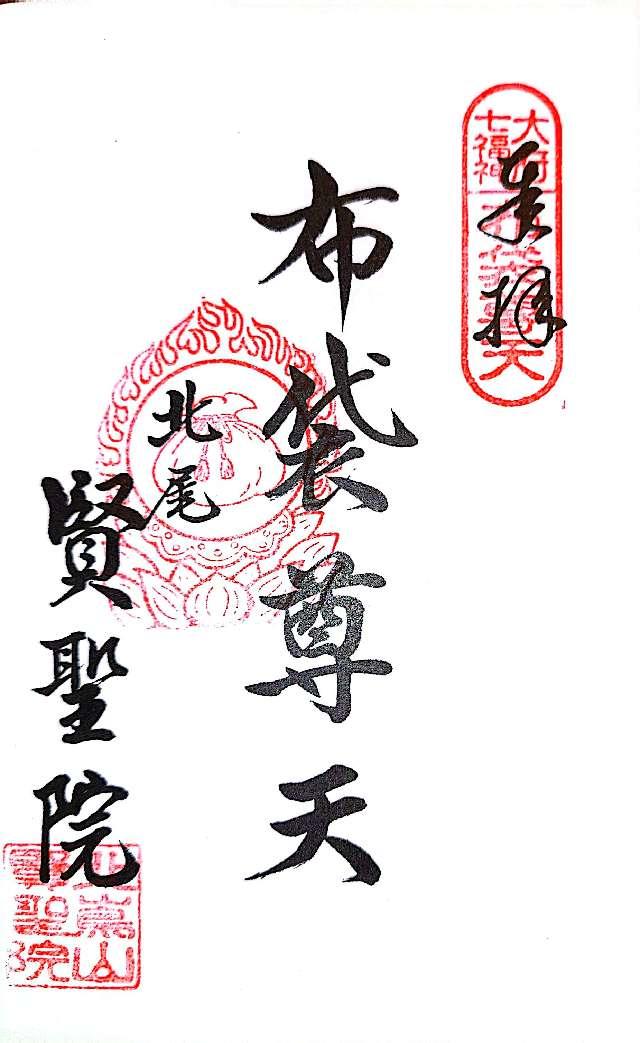 奉拝
大府
七福神
布袋尊天
布袋尊天
北尾
賢聖院
嵩山
賢聖院